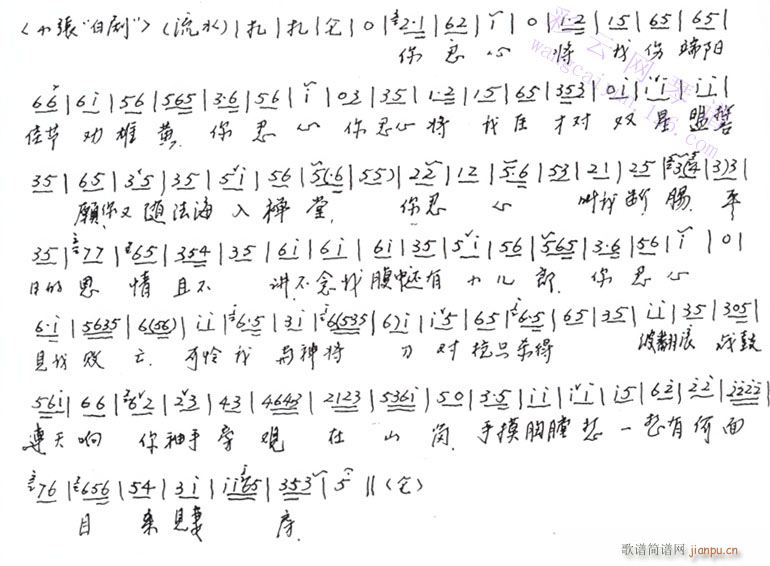 <小張“白剧”> (流水) | 扎 | 扎 | 仓 | 0 | 2·1 | 62 | i | 0 | i·2 | i5 | 65 | 65 |
你忍心 将 我伤 端阳
66 | 6i | 56 | 565 | 3·6 | 56 | i | 03 | 35 | 1·2 | 15 | 65 | 353 | 0i | ii | ii |
佳节 劝 雄黄 你 忍 心 你 忍心 将 我 在 才对 双星 盟誓
35 | 65 | 35 | 35 | 5i | 56 | 5(·6 | 55) | 22 | 12 | 5·6 | 53 | 21 | 25 | 3)3 |
願你又 随法海 入 禅堂 你忍 心 叫我断 腸 平
35 | 77 | 65 | 354 | 35 | 6i | 6i | 6i | 35 | 5i | 56 | 565 | 3·6 | 56 | i | 0 |
日的 恩 情 且不 讲 不念我 腹中还有 小儿郎 你忍心
6·i | 5635 | 6(56) | ii | 6·5 | 3i | 6(535 | 6)i | i5 | 65 | 6·5 | 65 | 35 | ii | 35 | 305 |
見我败亡 可怜我 与神将 刀对枪只杀得 波翻浪 战鼓
56i | 66 | 62 | 23 | 43 | 4643 | 2123 | 536i | 50 | 3·5 | ii | ii | i5 | 62 | 22 | i222 |
連天响 你袖手旁观 在山岗 手摸胸膛想一想 有何面
76 | 656 | 54 | 3i | ii65 | 353 | 5 || (仓)
目 来見妻房
彩云网
歌谱简谱网 jianpu.cn